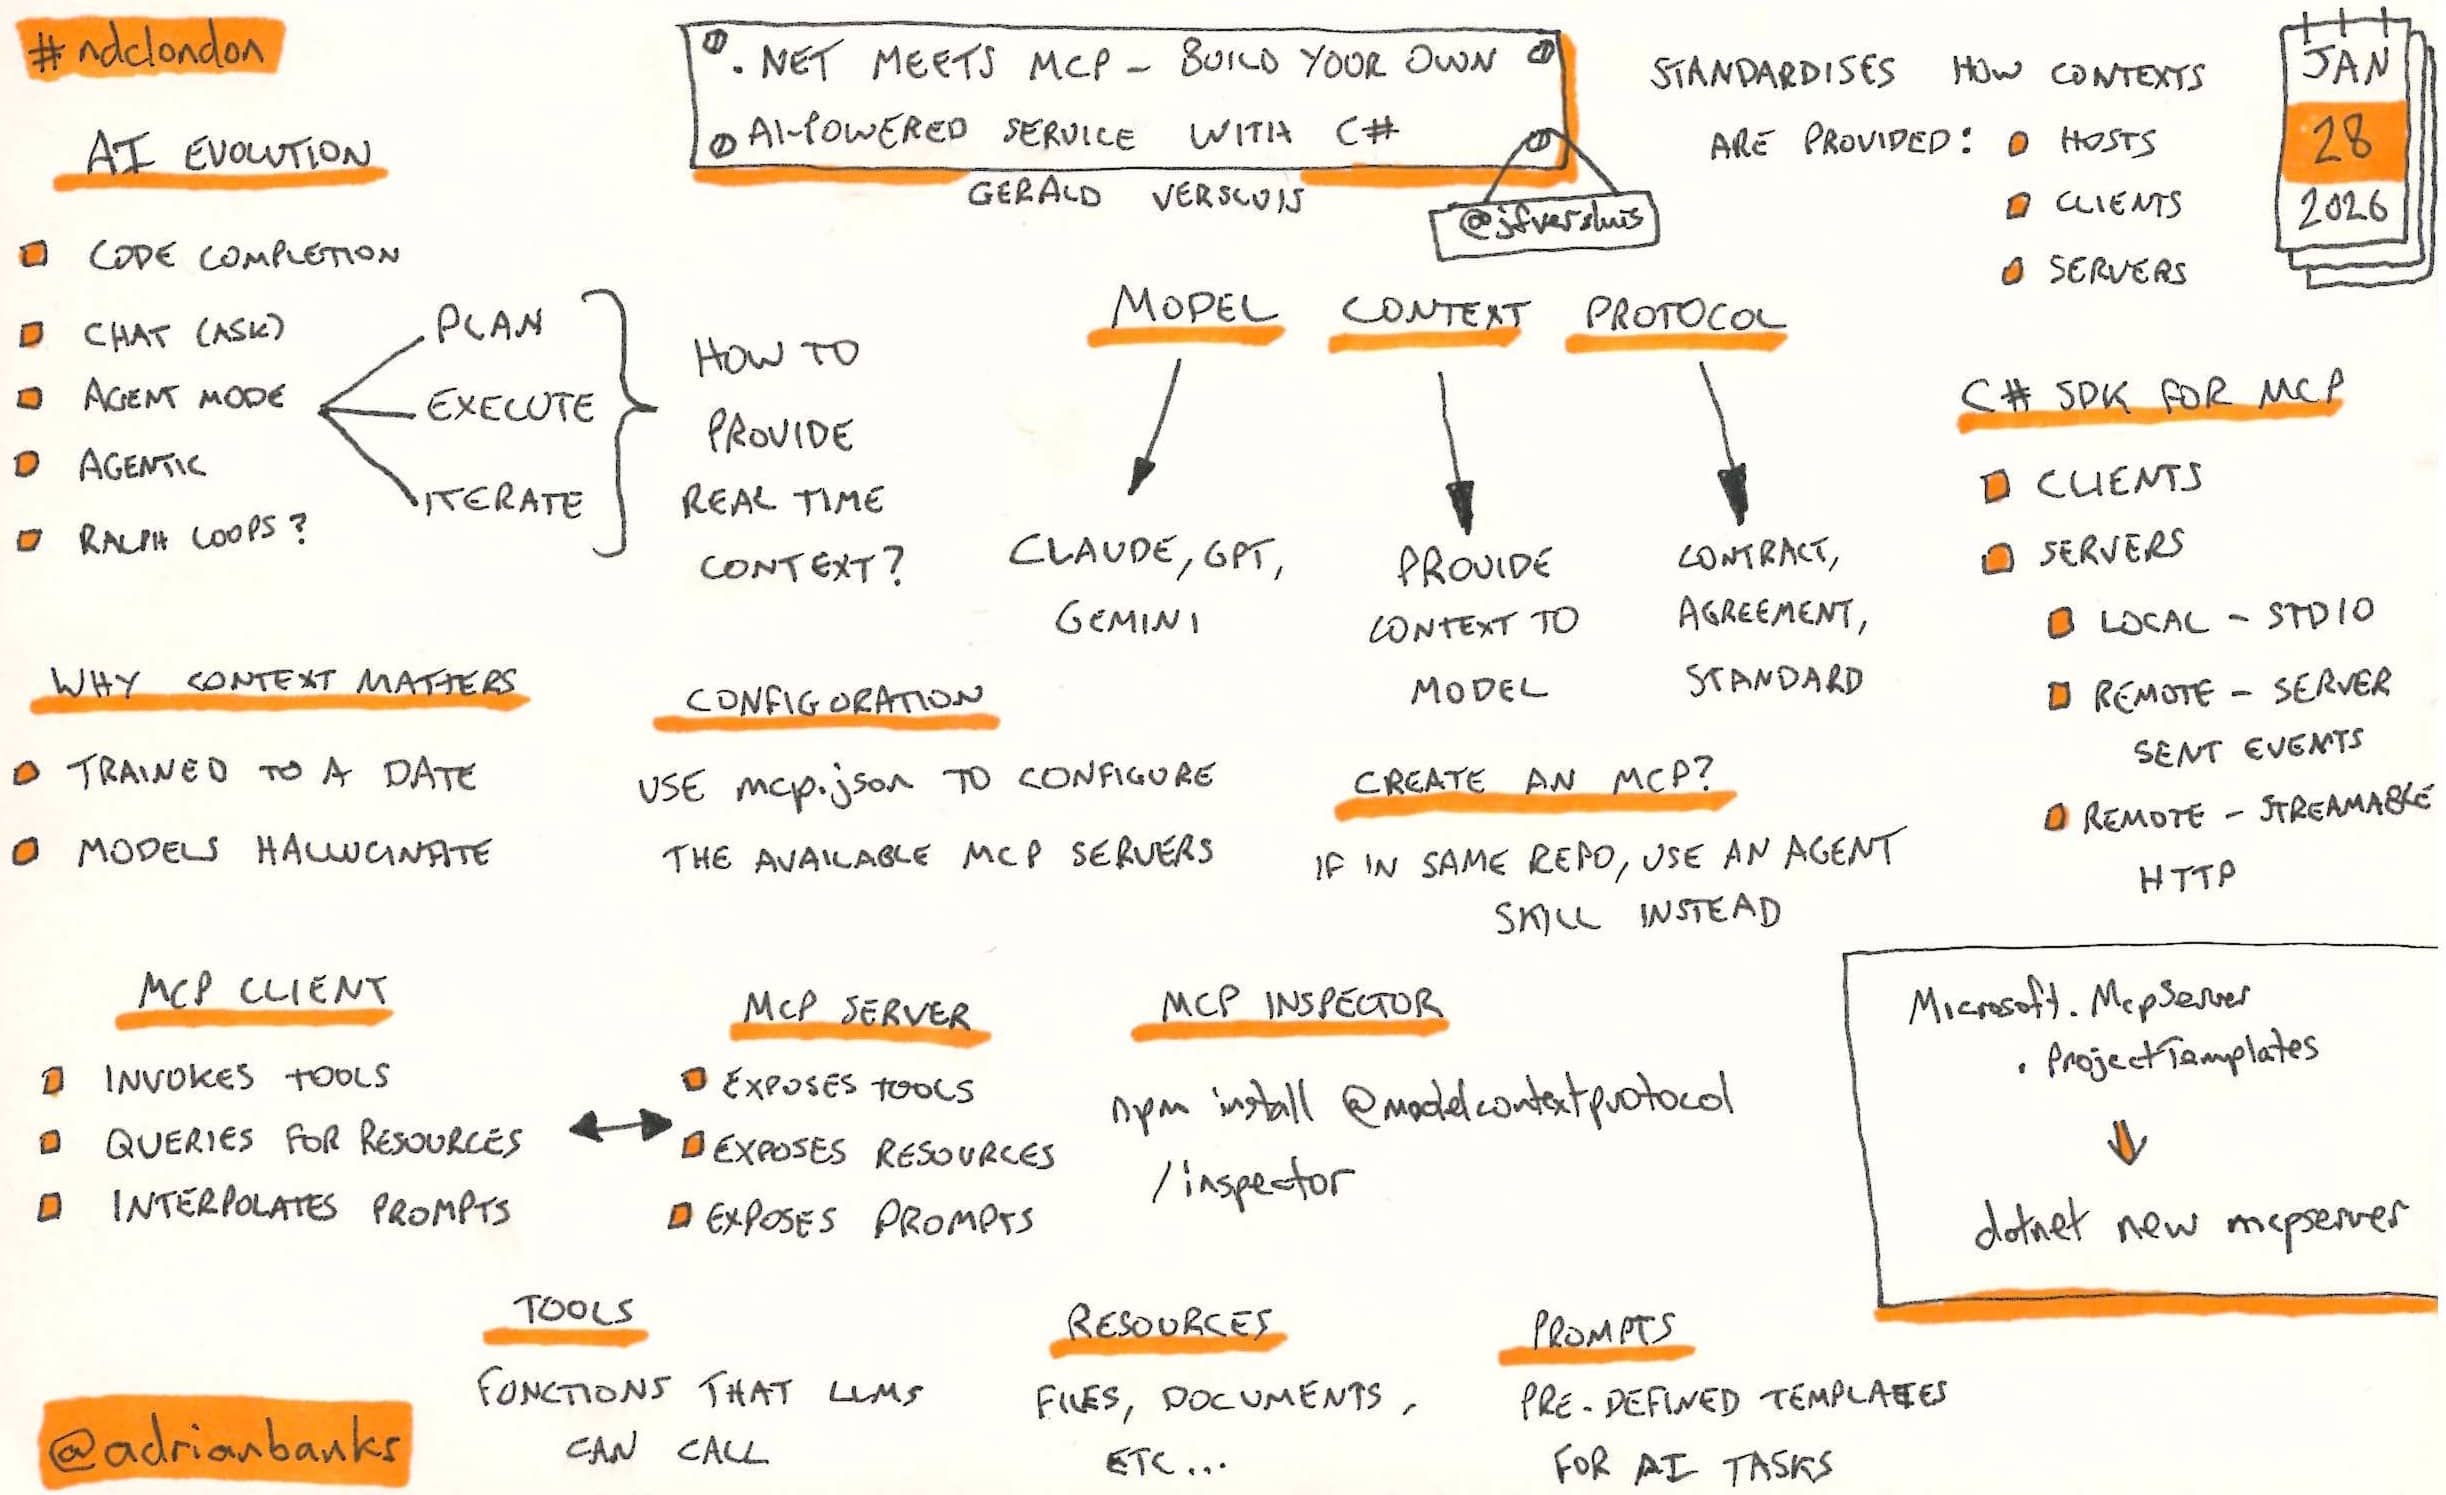 #ndclondon
.NET MEETS MCP - BUILD YOUR OWN
AI-POWERED SERVICE WITH C#
GERALD VERSLUIS
@jfversluis
STANDARDISES HOW CONTEXTS
ARE PROVIDED:
HOSTS
CLIENTS
SERVERS
JAN
28
2026
AI EVOLUTION
CODE COMPLETION
CHAT (ASK)
AGENT MODE
AGENTIC
RALPH LOOPS?
PLAN
EXECUTE
ITERATE
HOW TO
PROVIDE
REAL TIME
CONTEXT?
MODEL
CONTEXT
PROTOCOL
CLAUDE, GPT,
GEMINI
PROVIDE
CONTEXT TO
MODEL
CONTRACT,
AGREEMENT,
STANDARD
C# SDK FOR MCP
CLIENTS
SERVERS
LOCAL - STDIO
REMOTE - SERVER
SENT EVENTS
REMOTE - STREAMABLE
HTTP
WHY CONTEXT MATTERS
TRAINED TO A DATE
MODELS HALLUCINATE
CONFIGURATION
USE mcp.json TO CONFIGURE
THE AVAILABLE MCP SERVERS
CREATE AN MCP?
IF IN SAME REPO, USE AN AGENT
SKILL INSTEAD
MCP CLIENT
INVOKES TOOLS
QUERIES FOR RESOURCES
INTERPOLATES PROMPTS
MCP SERVER
EXPOSES TOOLS
EXPOSES RESOURCES
EXPOSES PROMPTS
MCP INSPECTOR
npm install @modelcontextprotocol
/inspector
Microsoft.McpServer
.ProjectTemplates
dotnet new mcpserver
TOOLS
FUNCTIONS THAT LLMS
CAN CALL
RESOURCES
FILES, DOCUMENTS,
ETC...
PROMPTS
PRE-DEFINED TEMPLATES
FOR AI TASKS
@adrianbanks